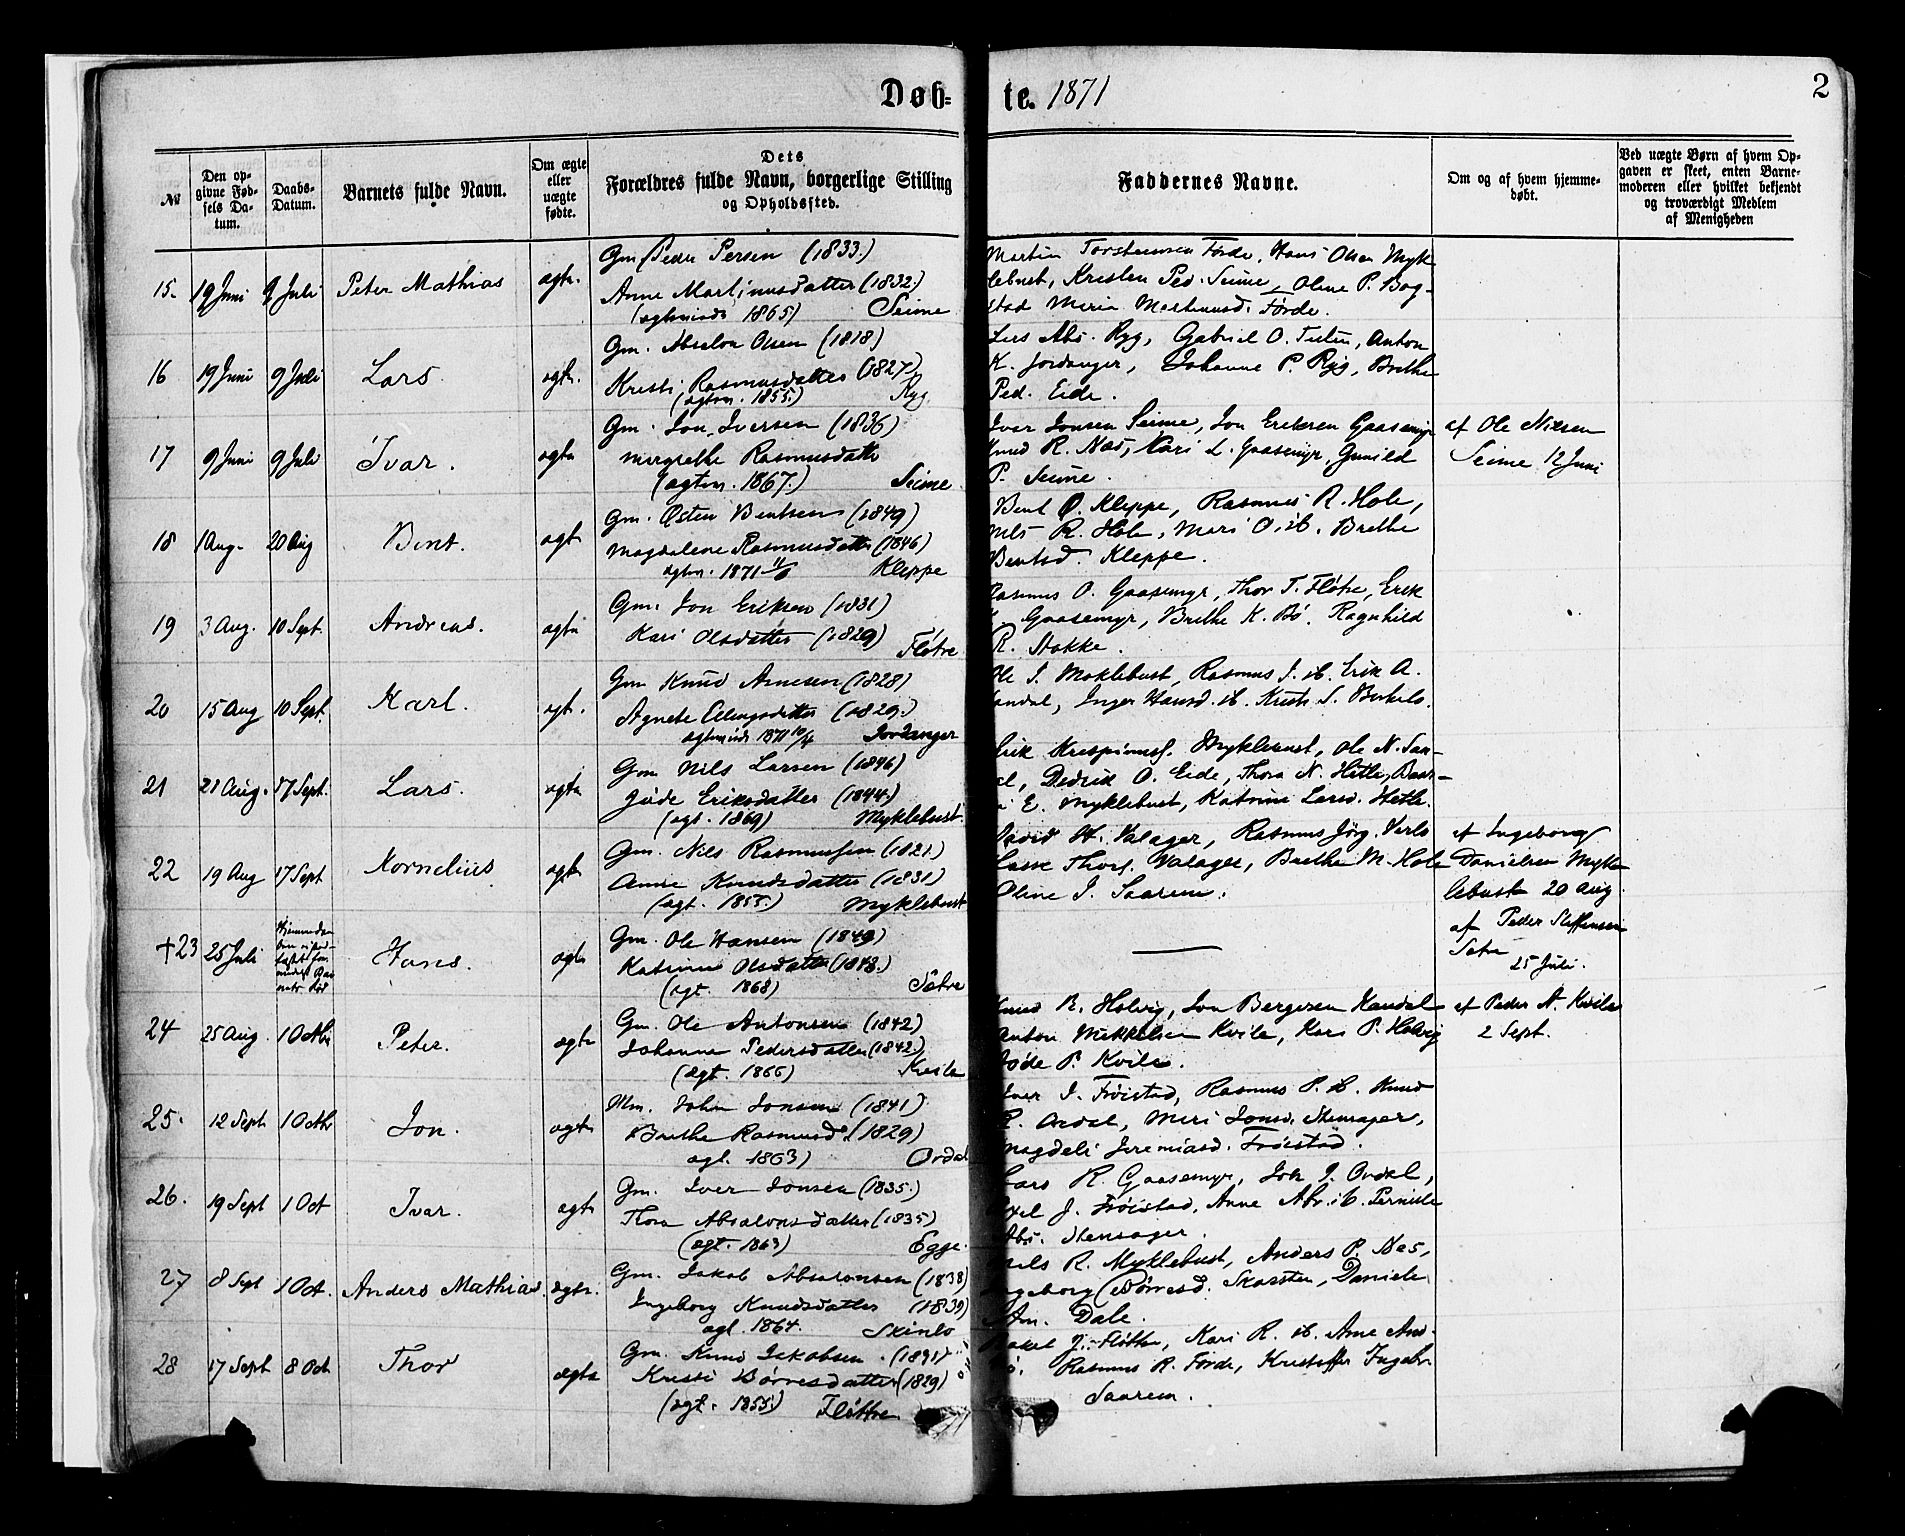 Døb-
te. 1871
2
№
Den op-
givne Fød-
sels Da-
tum.
Daabs-
Datum.
Barnets fulde Navn.
Om ægte
eller
uægte
fødte.
Dets
Forældres fulde Navn, borgerlige Stilling
og Opholdssted.
Faddernes Navne.
Om og af hvem hjemme-
døbt.
Ved uægte Børn af hvem Op-
gaven er skeet, enten Barne-
moderen eller hvilket bekjendt
og troværdigt Medlem
af Menigheden
15. 19 Juni 9 Juli Peter Mathias ægte.
Gm. Peder Persen (1833.)
Anne Martinusdatter (1832.)
(ægteviede 1865) Seime
Martin Torsteinsen Førde, Hans Olsen Myk
lebust, Kristen Ped. Seime, Oline P. Bog-
stad Førde.
16 19 Juni 9 Juli Lars. ægte.
Gm. Absalon Olsen (1818)
Kristi Rasmusdatter (1827)
(ægtev. 1855.) Ryg.
Lars Abs. Ryg, Gabriel O. Anton
K. Jordanger, Johanne P. Ryg, Brithe
Ped. Eide.
17 9 Juni 9 Juli Ivar. ægte
Gm. Jon Iversen (1836)
Margrethe Rasmusdatter
(ægtev. 1867.) Seime.
Ivar Jonsen Seime, Jon Eriksen Gaasemyr
Knud R. Nas, Kari L. Gaasemyr, Gunild
P. Seime.
af Ole Nilsen
Seime 12 Juni
18 1 Aug. 20 Aug Bent. ægt
Gm. Østen Bentsen (1849)
Magdalene Rasmusdatter (1846)
ægtev. 1871 11/6 Kleppe
Bent O. Kleppe, Rasmus R. Hole,
Nils R. Hole, Mari O. ib. Brithe
Bentsd. Kleppe.
19 3 Aug. 10 Sept. Andreas. ægte
Gm. Jon Eriksen (1831)
Kari Olsdatter (1829) Fløtre
Rasmus O. Gaasemyr, Thor T. Fløtre, Erik
Gaasemyr, Brithe K. Bø. Ragnhild
R. Stokke.
20 15 Aug 10 Sept Karl. ægt.
Gm Knud Arnesen (1828)
Agnete Ellingsdatter (1829.)
ægteviede 1871 10/4 Jordanger
Ole I. Moklebust, Rasmus I. ib. Erik A.
Inger Hansd. ib. S. Birkelo.
21 21 Aug. 17 Sept. Lars. ægte
Gm Nils Larsen (1846)
Gjøde Eriksdatter (1844.)
(ægt. 1869) Myklebust.
Erik Myklebust, Ole N. San-
dal, O. Eide, Thora N. Hetle,
E. Myklebust, Katrine Larsd. Hetle.
22 19 Aug 17 Sept Kornelius ægte
Gm. Nils Rasmussen (1821.)
Anne Knudsdatter (1831)
(ægt. 1855.) Myklebust
David H. Valager, Rasmus Jørg.
Lasse Thors. Valager, Brithe M. Hole
Oline I. Saarem.
af Ingeborg
Danielsen Mykle
lebust 20 Aug.
†23 25 Juli Hans. ægte
Gm. Ole Hansen (1849)
Katrine Olsdatter (1843.)
(ægt. 1868) Sætre
af Peder Steffensen
Sætre
25 Juli.
24 25 Aug. 1 Octbr Peter. ægte
Gm. Ole Antonsen (1842)
Johanne Pedersdatter (1842.)
(ægt. 1866) Kvile
Knud R. Holvig, Jon Bergesen Kandal
Anton Mikkelsen Kvile, Kari P. Holvig
Gjøde P. Kvile.
af Peder A. Kvile
2 Sept.
25. 12 Sept 1 Octbr Jon. ægte
Mm. John Jonsen (1841)
Brithe Rasmusd. (1829)
ægt. 1863) Ordal
Iver I. Frøistad, Rasmus P. ib. Knud
R. Ordal, Mari Jonsd. Stensager,
Magdeli Jeremiasd. Frøistad.
26. 19 Sept 1 Oct Ivar. ægte
Gm. Iver Jonsen (1835.)
Thora Absalonsdatter (1835)
(ægt. 1863) Egge.
Lars R. Gaasemyr, Joh I. Ordal,
Axel J. Frøistad, Anne Abr. ib. Pernille
Abs. Stensager.
27 8 Sept 1 Oct. Anders Mathias. ægte.
Gm. Jakob Absalonsen (1838)
Ingeborg Knudsdatter (1839)
ægt. 1864. Skinlo
Nils R. Myklebust, Anders P. Nas,
Ingeborg Børresd. Skarsten, Daniele
Am. Dale.
28 17 Sept 8 Oct. Thor ægte
Gm. Knud Jakobsen. (1831)
Kristi Børresdatter (1829)
(ægt. 1855.) Fløttre
Jakob J. Fløttre, Kari R. ib. Arne And.
Rasmus R. Førde, Kristoffer Ingebr.
Saarem.